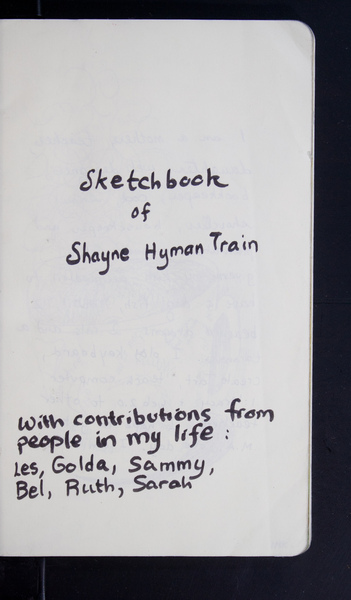 Sketchbook
of
Shayne Hyman Train
With contributions from
people in my life :
Les, Golda, Sammy,
Bel, Ruth, Sarah